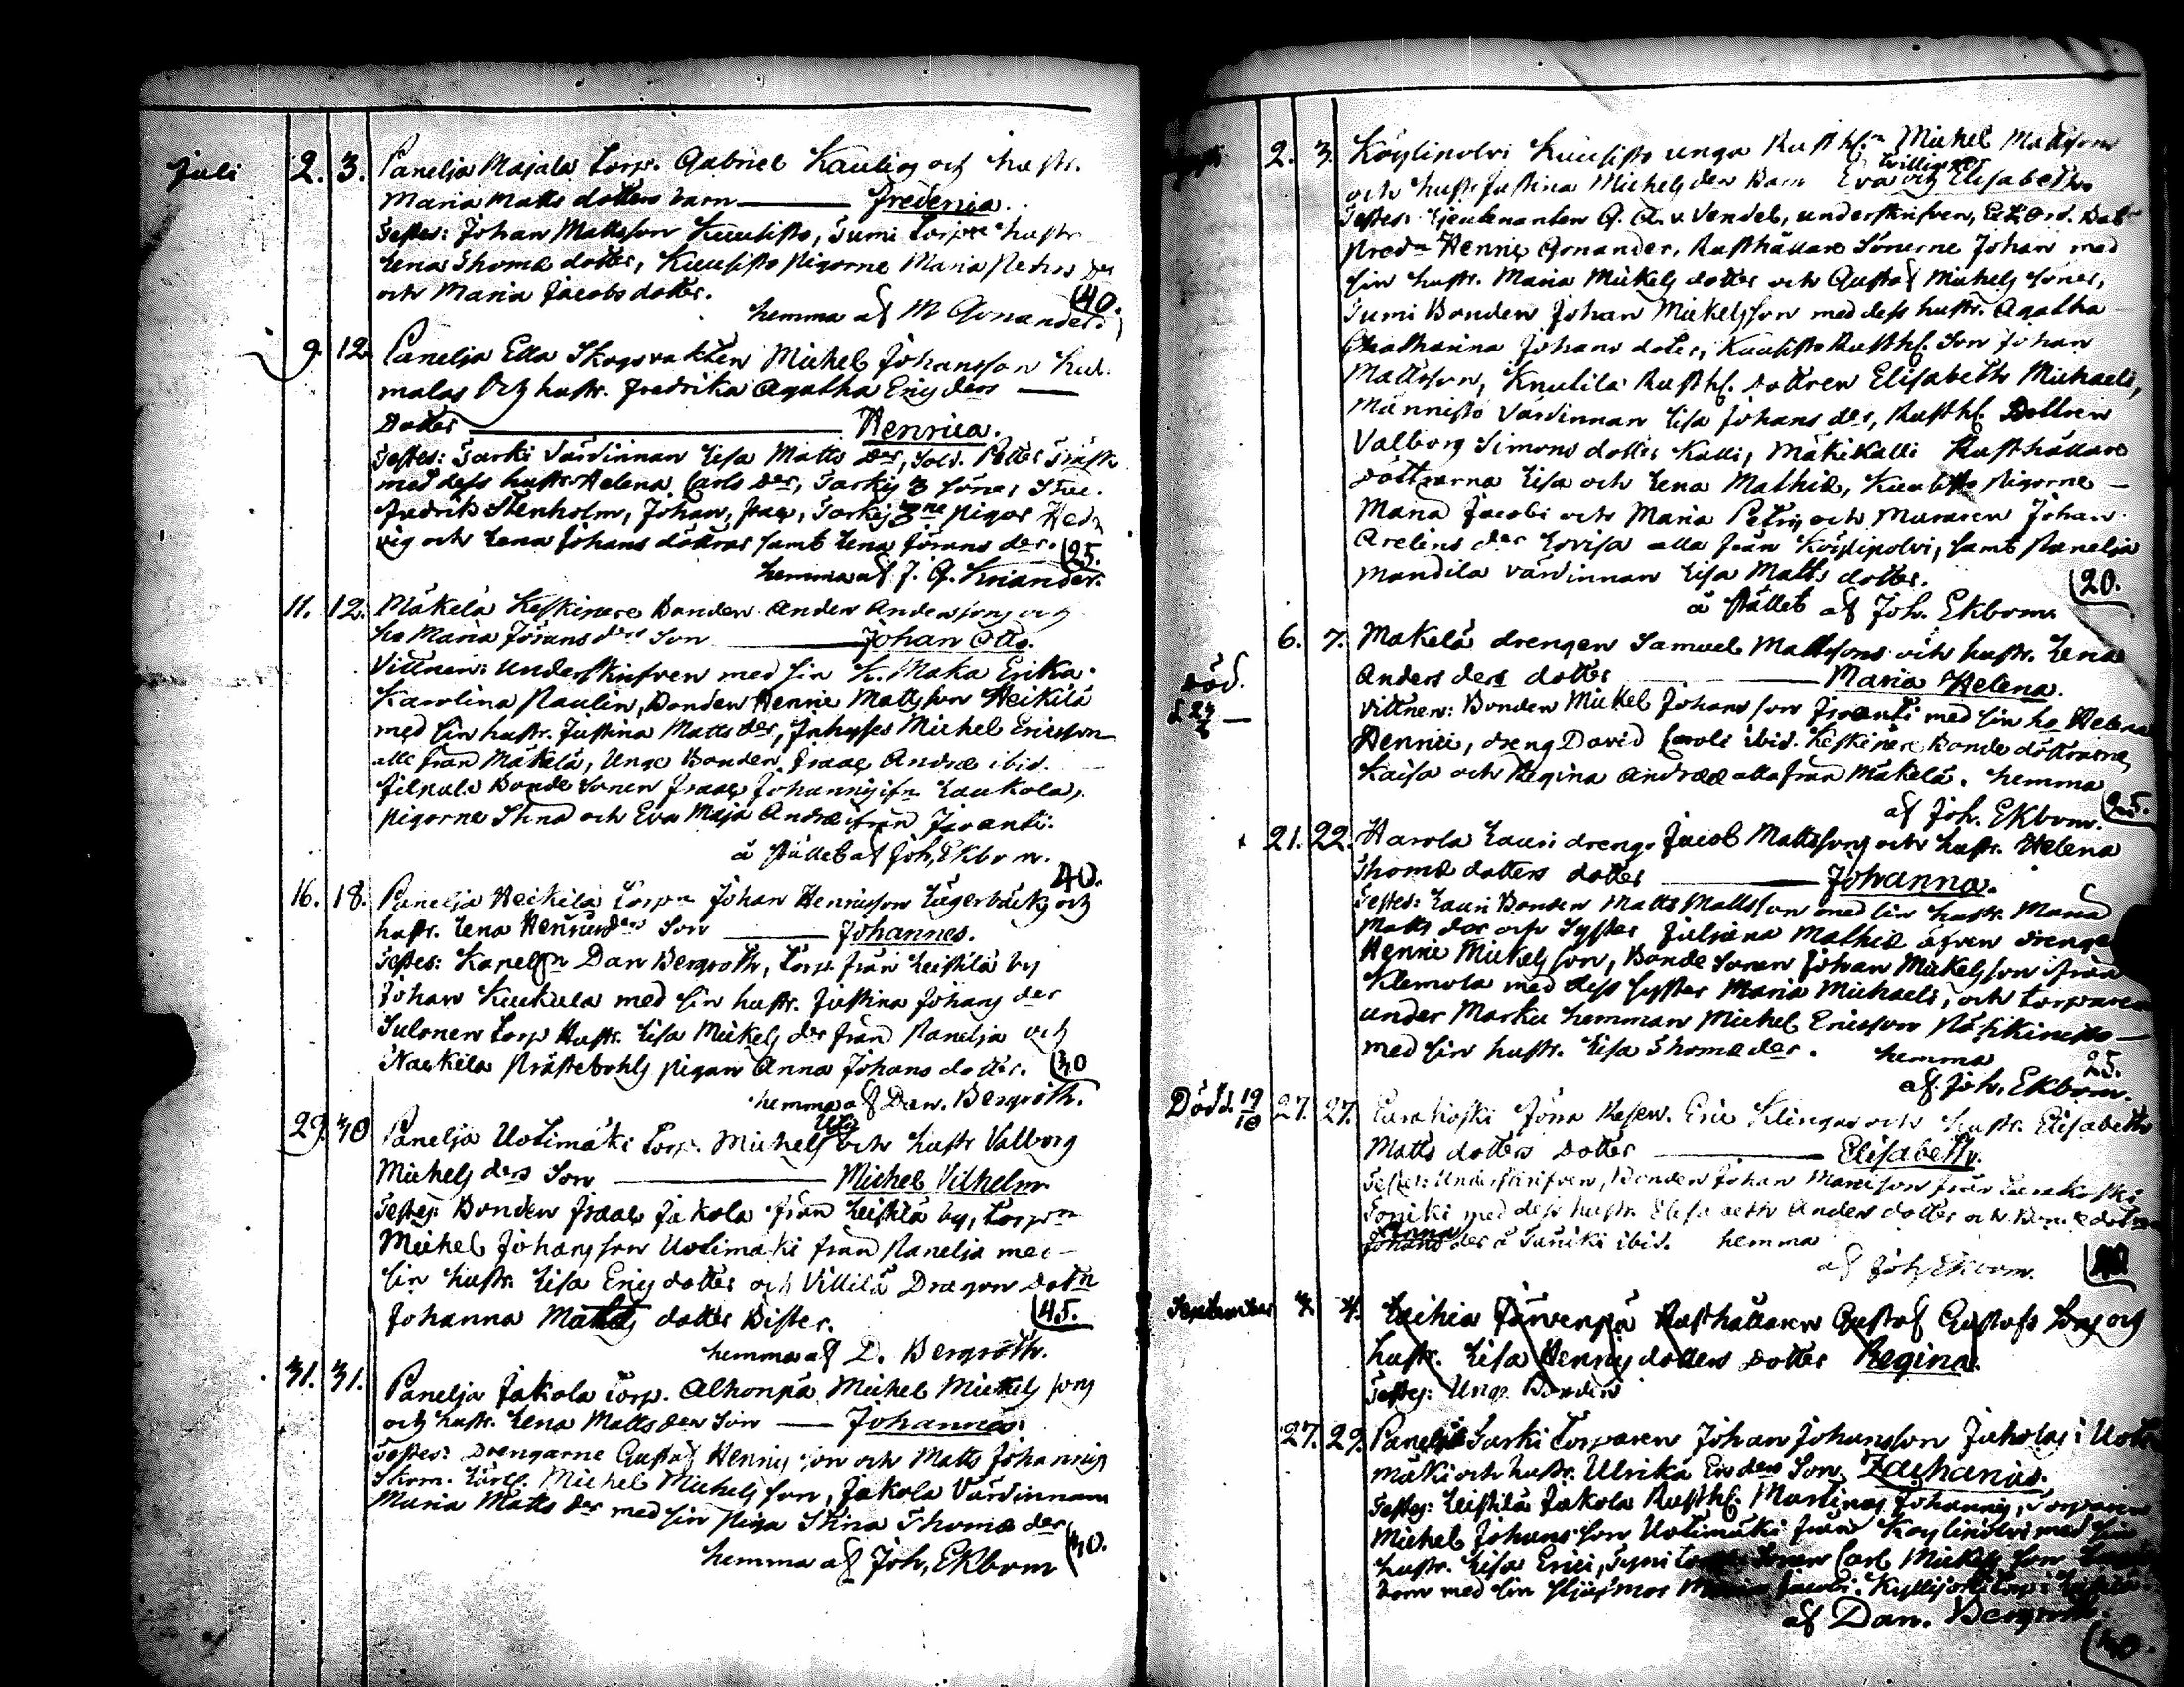 Juli 2. 3. Panelja Majala Torp. Gabriel Kaulig och hustr.
Maria Matts dotters barn — Fredenia.
Testes: Johan Mattsson Kuusisto, Tumi Torpre hustr
Lena Thomæ dotter, Kuusisto pigorne Maria Petri der
och Maria Jacobs dotter. (40.
hemma af M Gonander.
9. 12. Panelja Ella Skogvakten Michel Johansson
malas och hustr. Fredrika Agatha Erics ders —
Dotter — Henrica.
Testes: Sarki värdinnan Lisa Matts der, Sold. Petter
med dess hustr. Helena Carls der, Sarkis 3 söner
Fredrik Stenholm, Johan, Isaac, Sarkis 3ne pigor Hed
vig och Lena Johans döttrar samt Lena Görans der. (25.
hemma af J. G. Kriander.
11. 12. Mäkelä Keskinere Bonden Anders Andersons och
ho Maria Görans ders Son — Johan Otto.
Vittnen: Underskrifven med sin K. Maka Erika
Karolina Paulin, Bonden Henric Mattsson Heikilä
med sin hustr. Justina Matts der, Inhyses Michel Ericsson
alle från Mäkelä, Unge Bonden Isaac Andræ ibid.
Filpula Bonde Sonen Isaac Johannis ifr. Laukola,
pigorne Stina och Eva Maja Andræ från Juvanti.
å stället af Joh. Ekbom.
40.
16. 18. Panelja Heikilä Torpn Johan Henricsson Lägerbäcks och
hustr. Lena Henrics ders Son — Johannes.
Testes: Kapelln Dan Bergroth, Torp. från Leistilä by
Johan Kuukula med sin hustr. Justina Johans der
Sulonen Torp Hustr. Lisa Mickels der från Panelja och
Naskila Prästebohls pigan Anna Johans dotter. (30
hemma af Dan. Bergroth.
29. 30 Panelja Uotimäki Torp. Michels och hustr Valborg
Michels ders Son — Michel Vilhelm
Testes: Bonden Isaac Jakola från Leistilä by, Torpn
Michel Johansson Uotimäki från Panelja med
sin hustr. Lisa Erics dotter och Villilä Dragon dotn
Johanna Matts dotter Bister. (45.
hemma af D. Bergroth.
31. 31. Panelja Jakola Torp. Alhonpä Michel Mickels sons
och hustr. Lena Matts ders Son — Johannes.
Testes: Drengarne Gustaf Henrics son och Matts Johannis
Skom. Lärl. Michel Michelsson, Jakola Värdinnan
Maria Matts der med sin piga Stina Thomæ der
hemma af Joh. Ekbom (30.
2. 3. Köylipolvi Kuusisto unga Rusth.n Michel Mattsson
och hustr. Justina Michels ders Barn Eva och Elisabeth
tvillingar
Testes: Lieutenanten G. A. v. Vendel, underskrifven,
Henric Gonander, Rusthållare Sönerne Johan med
sin hustr. Maria Mickels dotter och Gustaf Michels söner,
Tumi Bonden Johan Mickelsson med dess hustr. Agatha
Chatharina Johans doter, Kuusisto Rusth. Son Johan
Mattsson, Knutila Rusth. Dottren Elisabeth Michaeli,
Männistö Värdinnan Lisa Johans der, Rusth. Dottren
Valborg Simons dotter Kalli, Mäkikalli Rusthållare
döttrarna Lisa och Lena Mathiæ, Kuusisto pigorne —
Maria Jacobi och Maria Petri och Muraren Johan
Arelins der Lovisa alla från Köylipolvi, samt Panelja
Mandila värdinnan Lisa Matts dotter. (20.
å stället af Joh. Ekbom.
6. 7. Makelä drengen Samuel Mattsons och hustr. Lena
död.
Anders ders dotter — Maria Helena.
Vittnen: Bonden Mickel Johansson Juvanti med sin ho Helena
Henrici, dreng David Caroli ibid. Keskinere Bonde döttrarne,
Kaisa och Regina Andreæ alla från Mäkelä. hemma
af Joh. Ekbom. (25.
21. 22. Harola Lauri dreng. Jacob Mattssons och hustr. Helena
Thomæ dotters dotter — Johanna.
Testes: Lauri Bonden Matts Mattsson med sin hustr. Maria
Matts der och Syster Juliana Mathiæ äfven drengen
Henric Mickelsson, Bonde Sonen Johan Mickelsson ifrån
Klemola med dess syster Maria Michaeli, och Torparen
under Marku hemman Michel Ericsson
med sin hustr. Lisa Thomæ der. hemma 25.
af Joh. Ekbom.
Död d. 19/10 27. 27. Eurakoski Jöra Reserv. Eric Klingas och hustr. Elisabeth
Matts dotters Dotter — Elisabeth.
Testes: Underskrifven, Bonden Johan Mansson från Eurakoski
med dess hustr. Elisabeth Anders dotter och
Anna
Johans der å ibid. hemma
af Joh Ekbom.
September 4. 4. Järvenpä Rusthållaren Gustaf Gustafs sons och
hustr. Lisa Henrics dotters Dotter Regina.
Testes: Unge Bonden
27. 29. Panelja Sarki Torparen Johan Johansson
mäki och hustr. Ulrika Erics ders Son, Zacharias.
Testes: Leistilä Jakola Rusth. Martinus Johannis, Torparen
Michel Johansson Uotimäki från Köylipolvi med sin
hustr. Lisa Erici, Carl Mickelsson
med sin styfmor
af Dan. Bergroth.
(30.